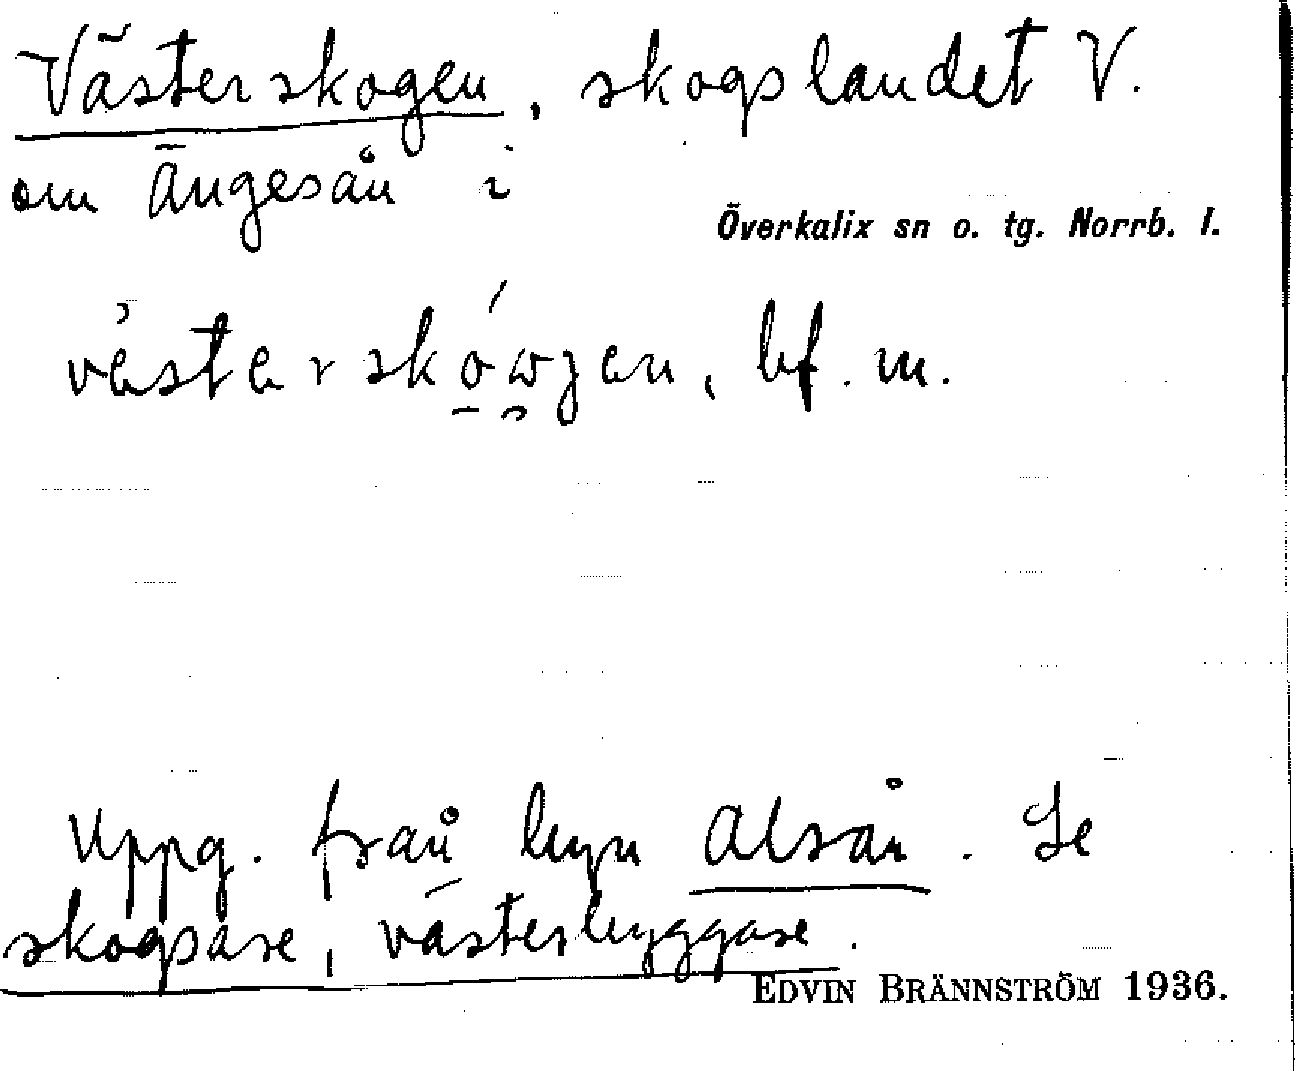 Västerskogen, skogslandet V.
om Ängesån i
Överkalix sn o. tg. Norrb. l.
bf. m.
Uppg. från byn Alsån. Se
skogsare, västerbyggare.
EDVIN BRÄNNSTRÖM 1936.